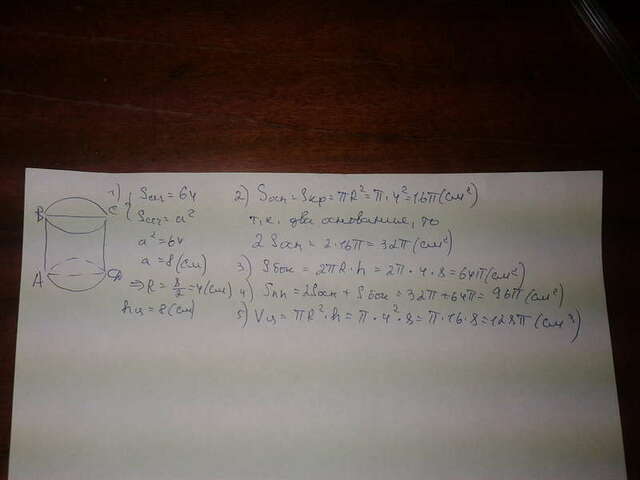 B C
A D
1) { Sсеч = 64
Sсеч = a²
a² = 64
a = 8 (см)
⇒ R = 8/2 = 4 (см)
hц = 8 (см)
2) Sосн = Sкр = πR² = π·4² = 16π (см²)
т.к. два основания, то
2Sосн = 2·16π = 32π (см²)
3) Sбок = 2πR·h = 2π·4·8 = 64π (см²)
4) Sпп = 2Sосн + Sбок = 32π + 64π = 96π (см²)
5) Vц = πR²·h = π·4²·8 = π·16·8 = 128π (см³)